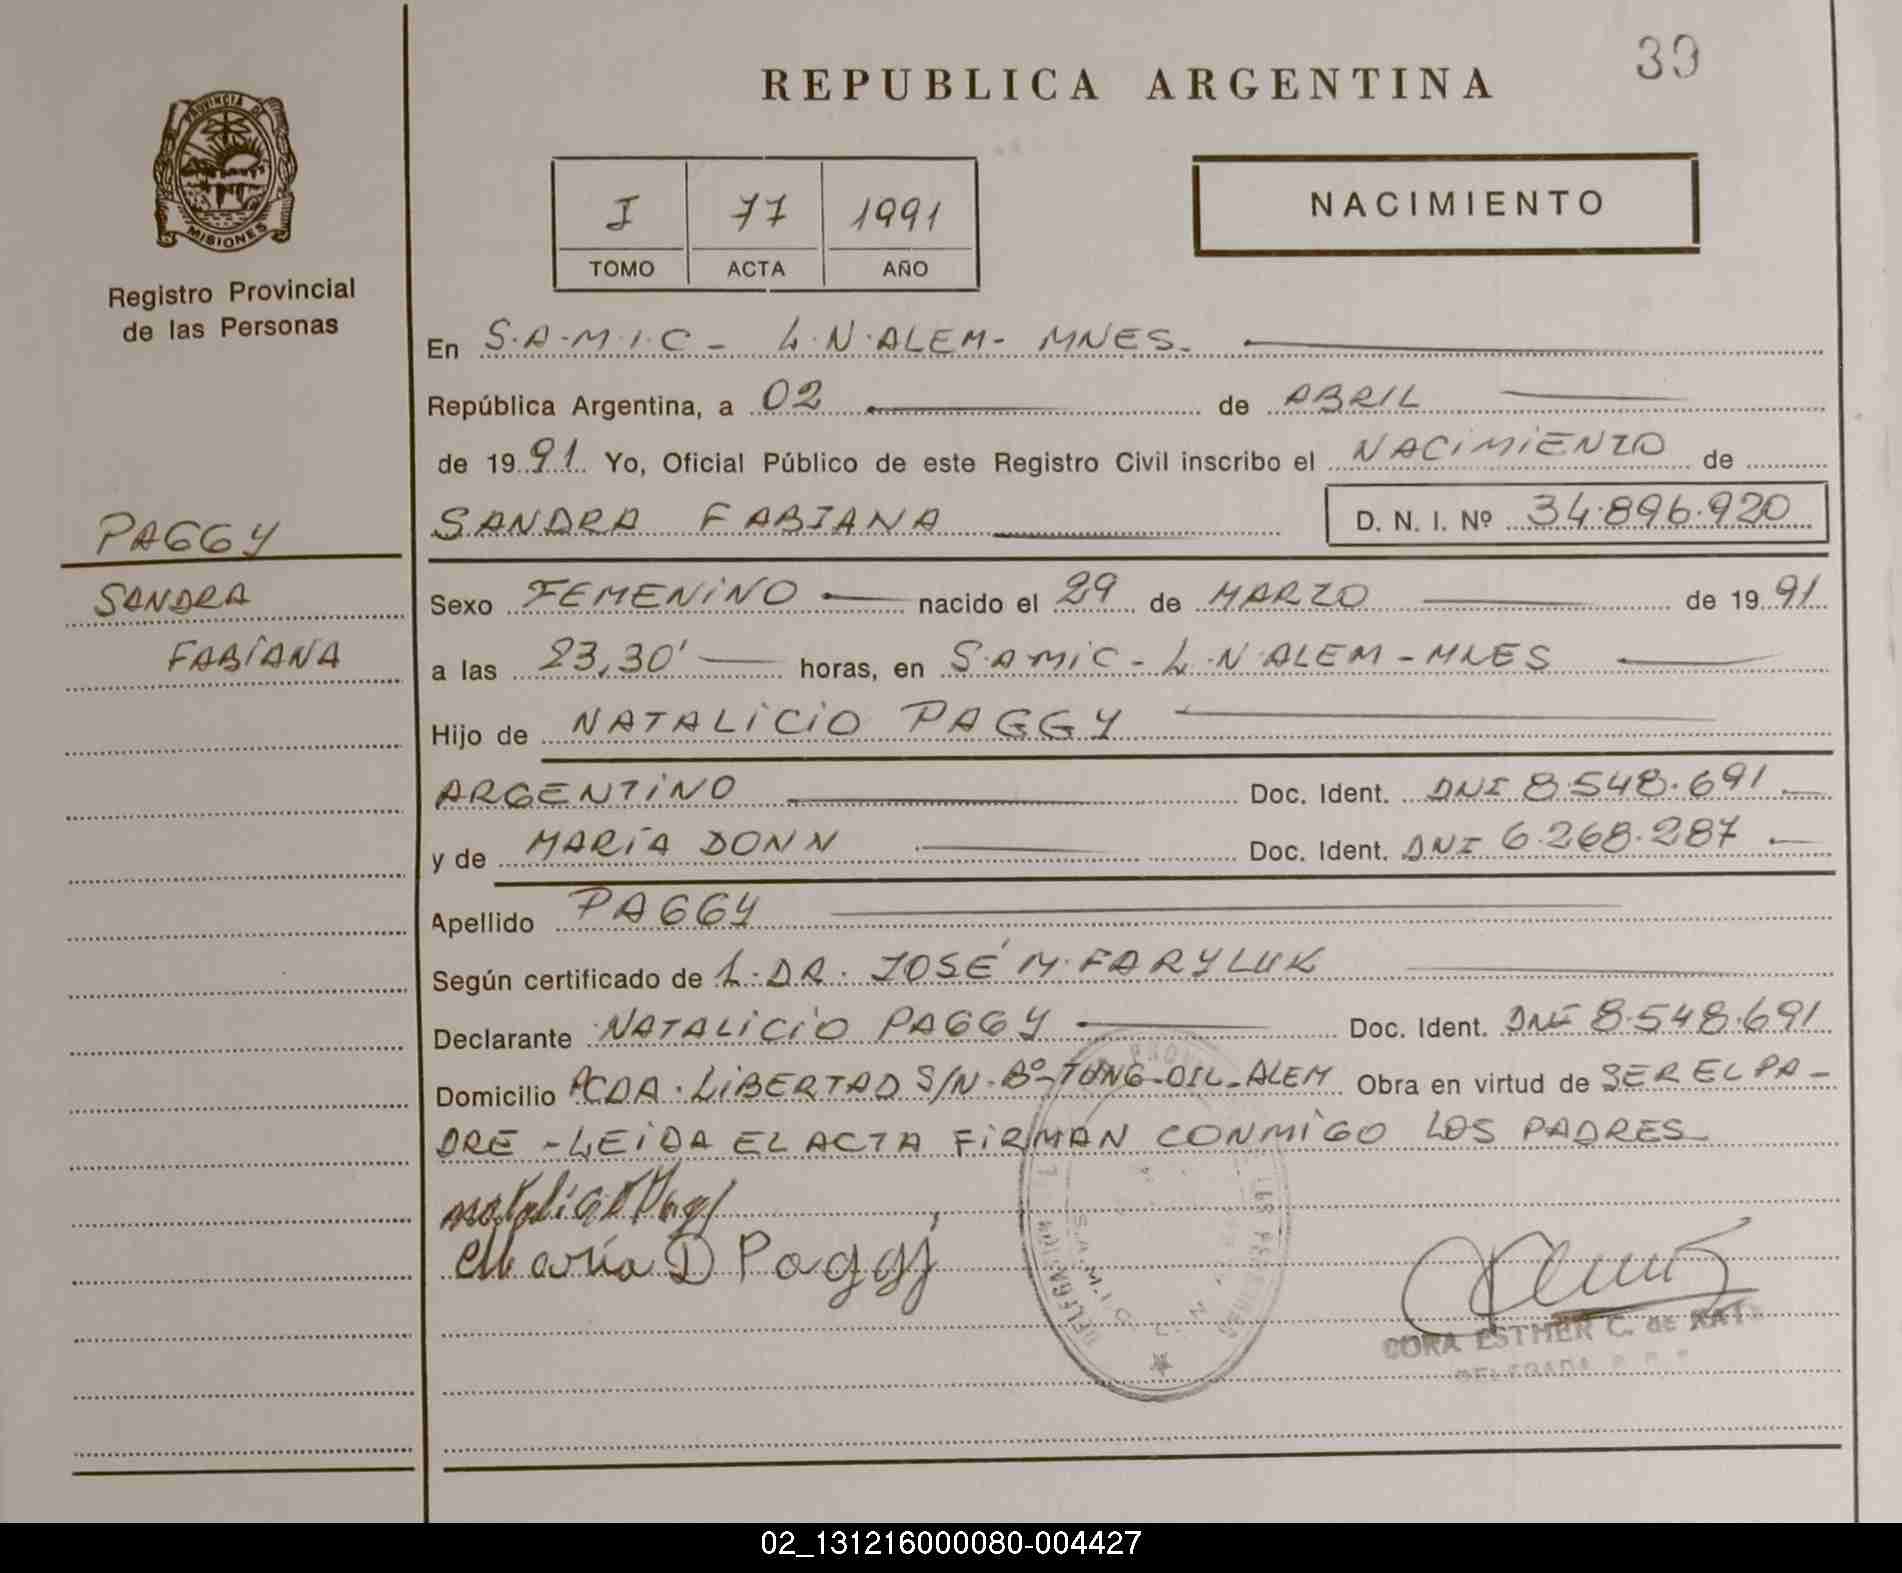 39
REPUBLICA ARGENTINA
PROVINCIA DE
MISIONES
Registro Provincial
de las Personas
I 77 1991
TOMO ACTA AÑO
NACIMIENTO
En S.A.M.I.C - L.N.ALEM- MNES.
República Argentina, a 02 de ABRIL
de 1991 Yo, Oficial Público de este Registro Civil inscribo el NACIMIENTO de
SANDRA FABIANA D. N. I. Nº 34.896.920
PAGGY
SANDRA
FABIANA
Sexo FEMENINO nacido el 29 de MARZO de 1991
a las 23,30' horas, en S.A.MIC - L.N.ALEM - MNES
Hijo de NATALICIO PAGGY
ARGENTINO Doc. Ident. DNI 8.548.691
y de MARÍA DONN Doc. Ident. DNI 6.268.287
Apellido PAGGY
Según certificado de L. DR. JOSÉ M. FARYLUK
Declarante NATALICIO PAGGY Doc. Ident. DNI 8.548.691
Domicilio ACDA. LIBERTAD S/N. Bº-TUNG-OIL-ALEM Obra en virtud de SER EL PA-
DRE - LEIDA EL ACTA FIRMAN CONMIGO LOS PADRES
Maria D Paggy
ESTHER C. de
02_131216000080-004427